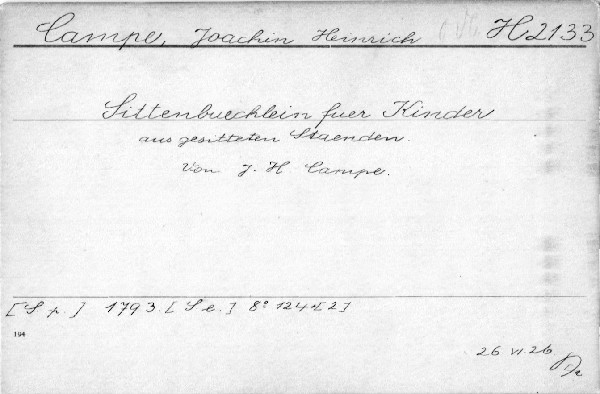 Campe, Joachin Heinrich H2133
Sittenbuechlein fuer Kinder
aus gesitteten Staenden.
Von J. H Campe.
[S. p.] 1793. [S e.] 8° 124+[2]
194
26 VI 26